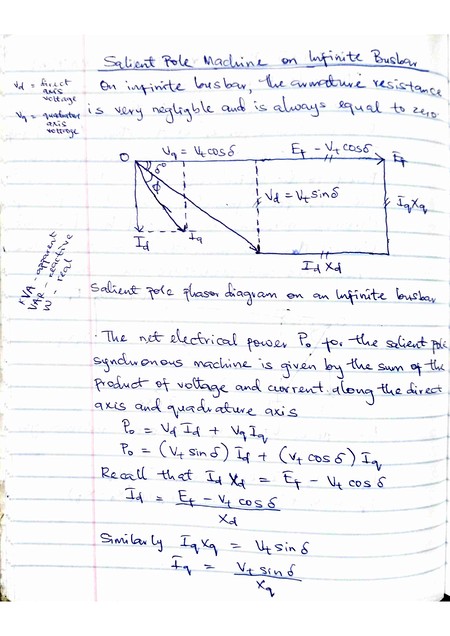 Salient Pole Machine on Infinite Busbar
Vd = direct
axis
voltage
Vq = quadrature
axis
voltage
On infinite busbar, the armature resistance
is very negligble and is always equal to zero
O
Vq = Vt cosδ
Ef - Vt cosδ
Ef
δ
φ
Vd = Vt sinδ
Iq Xq
Id
Iq
Id Xd
KVA - apparent
VAR - reactive
W - real
Salient pole phasor diagram on an Infinite busbar
The net electrical power Po for the salient pole
synchronous machine is given by the sum of the
product of voltage and current along the direct
axis and quadrature axis
Po = Vd Id + Vq Iq
Po = (Vt sin δ) Id + (Vt cos δ) Iq
Recall that Id Xd = Ef - Vt cos δ
Id = Ef - Vt cos δ
Xd
Similarly Iq Xq = Vt sin δ
Iq = Vt sin δ
Xq